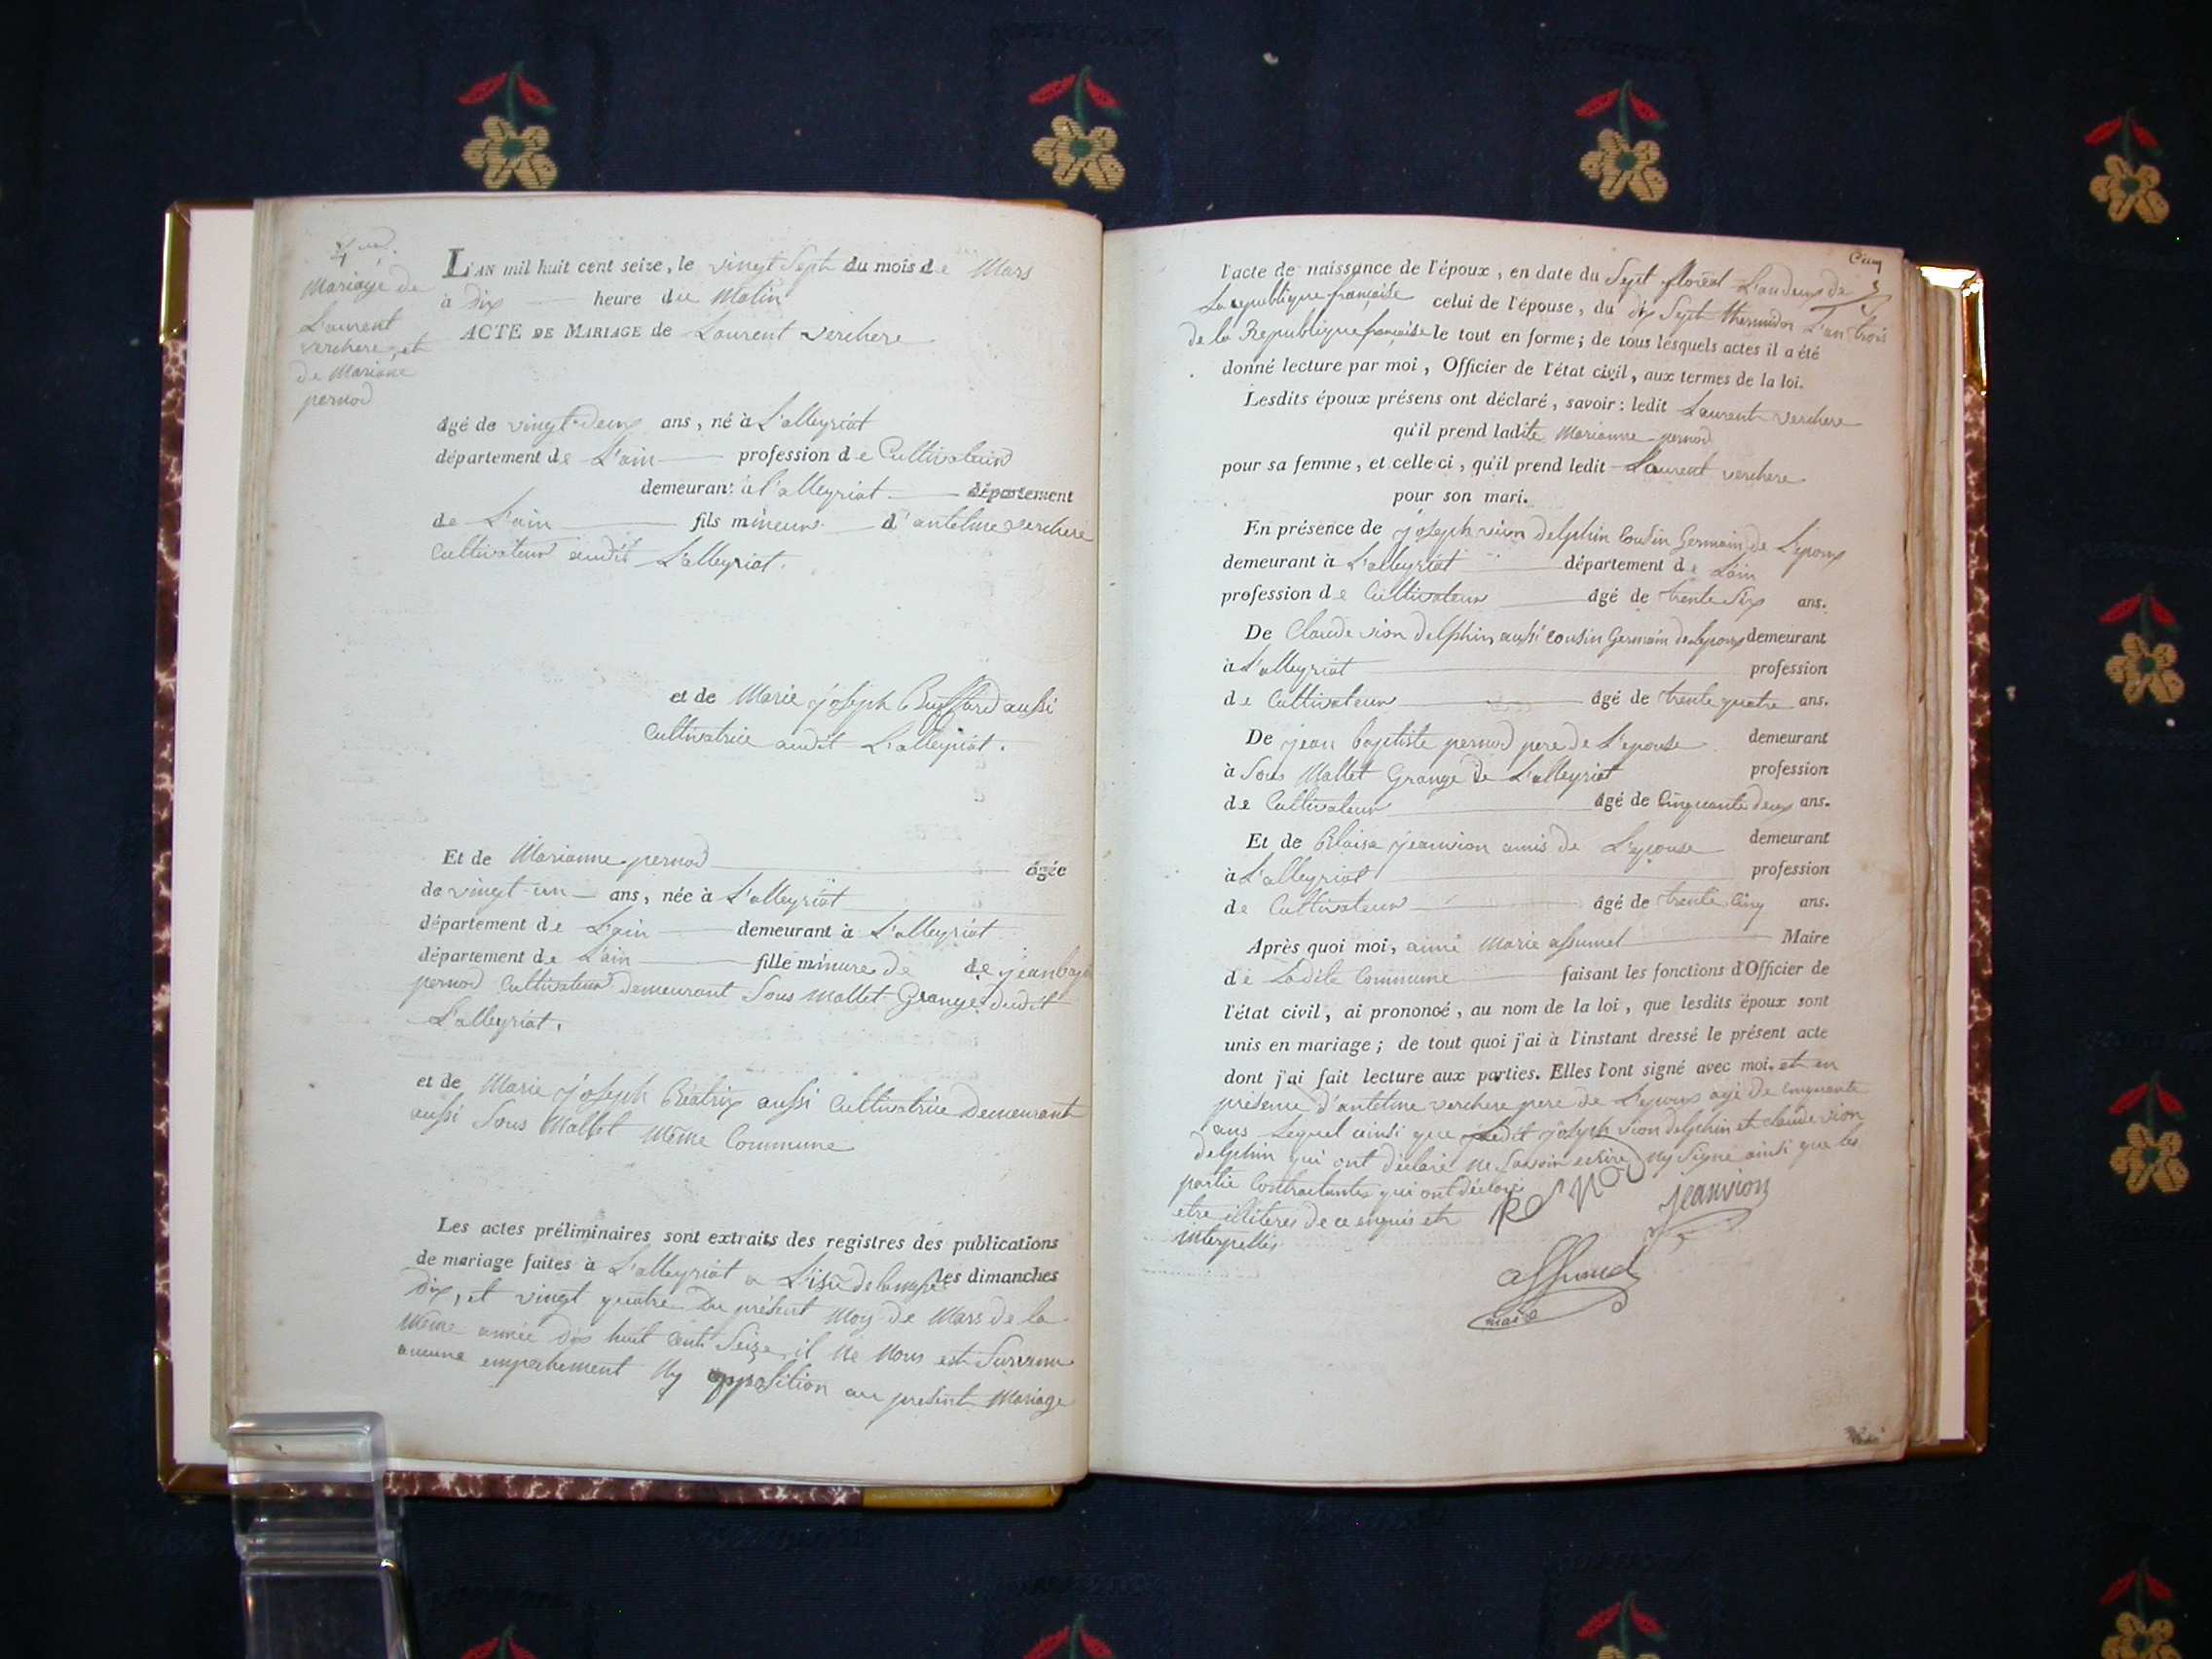 Mariage de
Laurent
verchere, et
de Mariane
pernod
L'AN mil huit cent seize, le vingt Sept du mois de Mars
à dix heure du Matin
ACTE DE MARIAGE de Laurent verchere
âgé de vingt deux ans, né à L'alleyriat
département de L'ain profession de Cultivateur
demeurant à l'alleyriat département
de L'ain fils mineur d'antelme verchere
Cultivateur audit L'alleyriat.
et de Marie joseph Buffard aussi
Cultivatrice audit L'alleyriat.
Et de Marianne pernod âgée
de vingt un ans, née à L'alleyriat
département de L'ain demeurant à L'alleyriat
département de L'ain fille mineure de de jean bap
pernod Cultivateur demeurant Sous Mallet Grange dudit
L'alleyriat.
et de Marie joseph Béatrix aussi Cultivatrice Demeurant
aussi Sous Mallet Même Commune
Les actes préliminaires sont extraits des registres des publications
de mariage faites à L'alleyriat a L'isu de la messe les dimanches
dix, et vingt quatre du présent Moy de Mars de la
Même année dix huit Cent Seize, il Ne Nous est Survenu
aucune empechement Ny opposition au present Mariage
Cinq
5
l'acte de naissance de l'époux, en date du Sept floréal L'an deux de
La republique française celui de l'épouse, du dix Sept thermidor L'an trois
de la Republique française le tout en forme; de tous lesquels actes il a été
donné lecture par moi, Officier de l'état civil, aux termes de la loi.
Lesdits époux présens ont déclaré, savoir: ledit Laurent verchere
qu'il prend ladite Marianne pernod
pour sa femme, et celle ci, qu'il prend ledit Laurent verchere
pour son mari.
En présence de joseph vion Delphin Cousin Germain de L'epoux
demeurant à L'alleyriat département de L'ain
profession de Cultivateur âgé de trente Six ans.
De Claude vion Delphin, aussi cousin Germain de Lepoux demeurant
à L'alleyriat profession
de Cultivateur âgé de trente quatre ans.
De jean baptiste pernod pere de L'epouse demeurant
à Sous Mallet Grange de L'alleyriat profession
de Cultivateur âgé de Cinquante deux ans.
Et de Blaise jeanvion amis de L'epouse demeurant
à L'alleyriat profession
de Cultivateur âgé de trente Cinq ans.
Après quoi moi, aimé Marie assumel Maire
de Ladite Commune faisant les fonctions d'Officier de
l'état civil, ai prononcé, au nom de la loi, que lesdits époux sont
unis en mariage; de tout quoi j'ai à l'instant dressé le présent acte
dont j'ai fait lecture aux parties. Elles l'ont signé avec moi. et en
présence d'antelme verchere pere de Lepoux agé de cinquante
ans Lequel ainsi que Ledit joseph vion delphin et claude vion
delphin qui ont déclaré ne Savoir ecrire Ny Signé ainsi que les
partie Contractantes qui ont déclaré
etre illiteres de ce enquis et
interpellés
PerNOD
jeanvion
assumel
maire